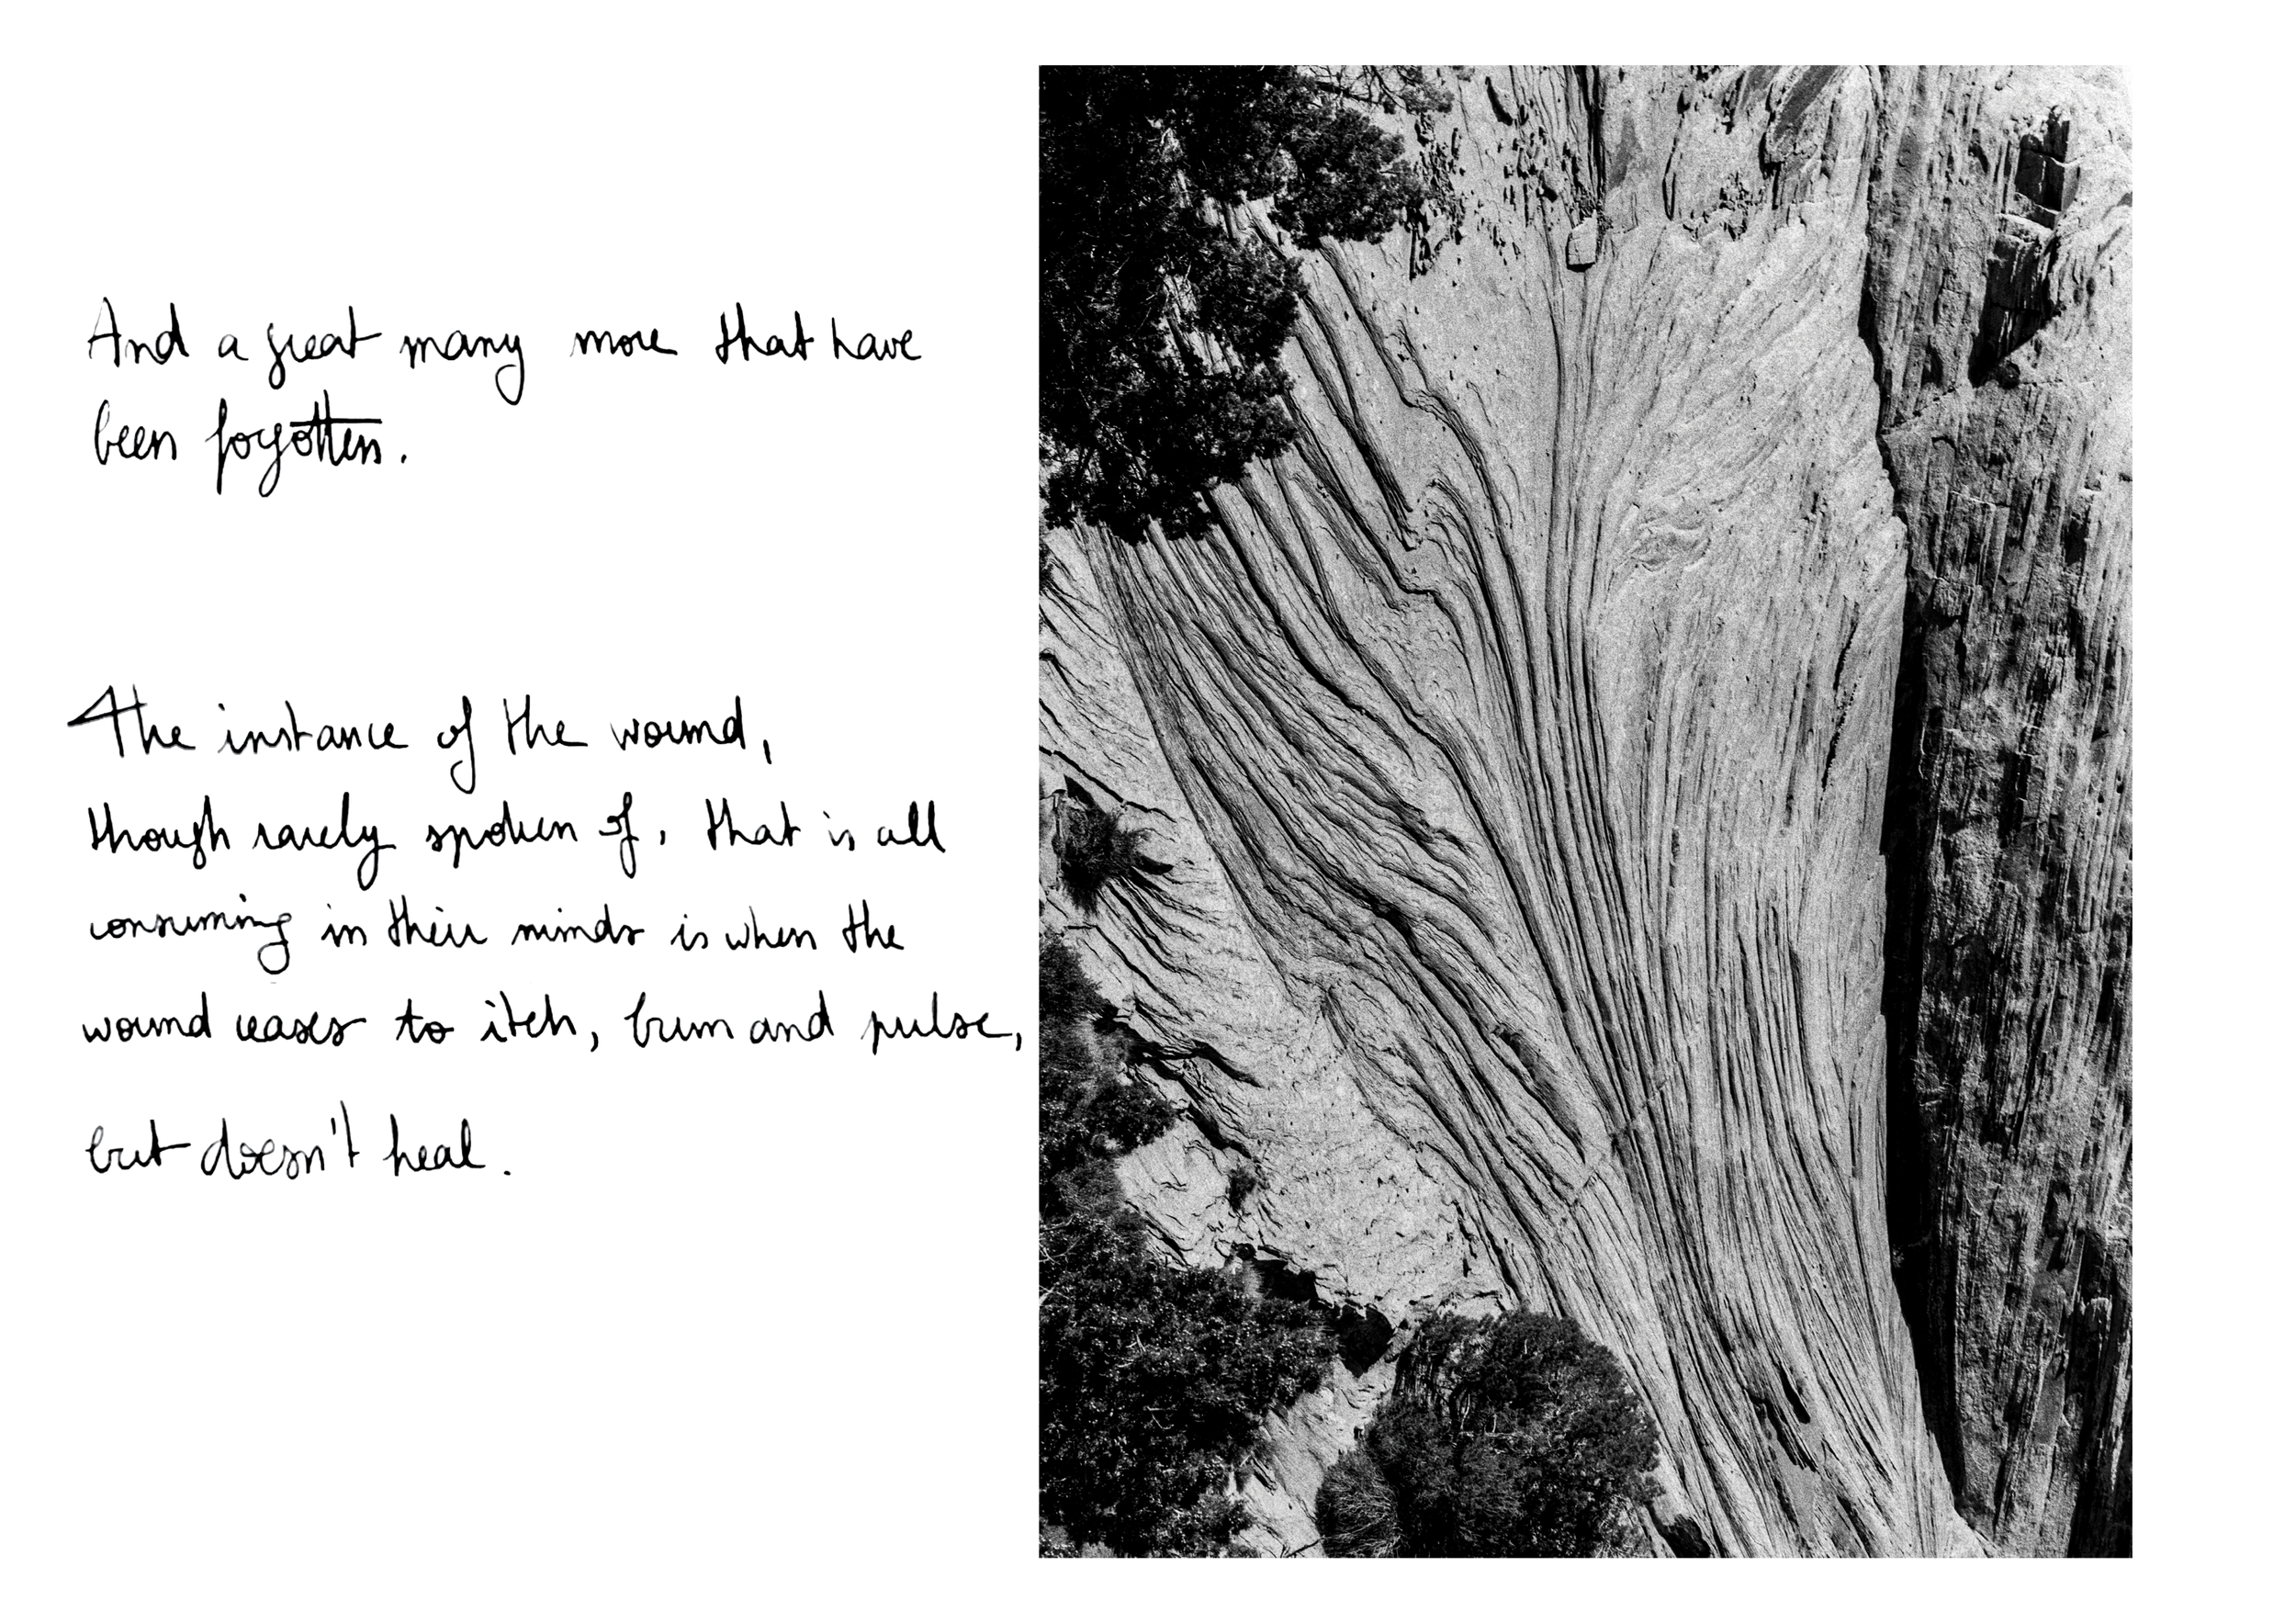 And a great many more that have
been forgotten.
The instance of the wound,
though rarely spoken of, that is all
consuming in their minds is when the
wound ceases to itch, burn and pulse,
but doesn't heal.